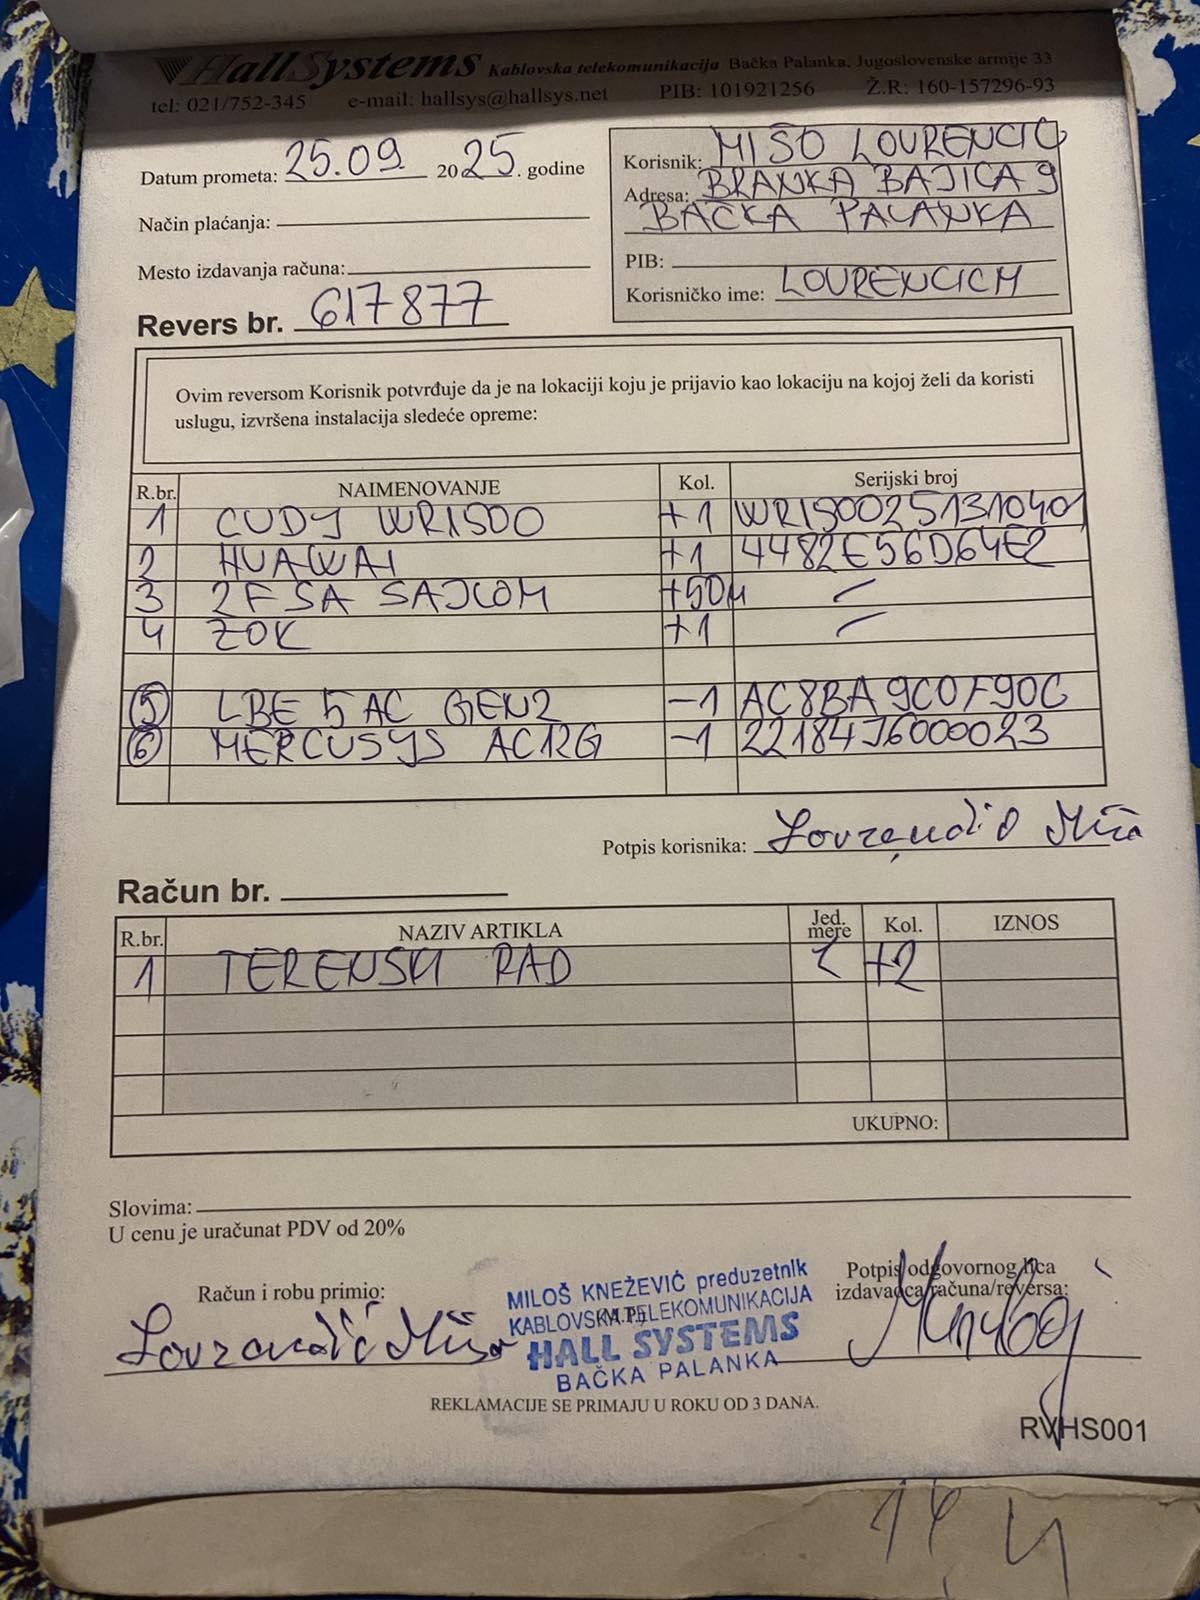 HallSystems Kablovska telekomunikacija Bačka Palanka, Jugoslovenske armije 33
tel: 021/752-345 e-mail: hallsys@hallsys.net PIB: 101921256 Ž.R: 160-157296-93
Datum prometa: 25.09. 2025. godine
Način plaćanja:
Mesto izdavanja računa:
Revers br. 617877
Korisnik: MIŠO LOVRENCIC
Adresa: BRANKA BAJICA 9
BAČKA PALANKA
PIB:
Korisničko ime: LOVRENCICM
Ovim reversom Korisnik potvrđuje da je na lokaciji koju je prijavio kao lokaciju na kojoj želi da koristi
uslugu, izvršena instalacija sledeće opreme:
R.br. NAIMENOVANJE Kol. Serijski broj
1 CUDY WR1500 +1 WR1500251310401
2 HUAWAI +1 4482E56D64E2
3 2F SA SAJLOM +50m –
4 ZOK +1 –
5 LBE 5AC GEN2 -1 AC8BA9C0F90C
6 MERCUSYS AC12G -1 22184J6000023
Potpis korisnika:
Račun br.
R.br. NAZIV ARTIKLA Jed. mere Kol. IZNOS
1 TERENSKI RAD +2
UKUPNO:
Slovima:
U cenu je uračunat PDV od 20%
Račun i robu primio:
MILOŠ KNEŽEVIĆ preduzetnik
KABLOVSKA TELEKOMUNIKACIJA
(M.P.)
HALL SYSTEMS
BAČKA PALANKA
Potpis odgovornog lica
izdavaoca računa/reversa:
REKLAMACIJE SE PRIMAJU U ROKU OD 3 DANA.
RVHS001